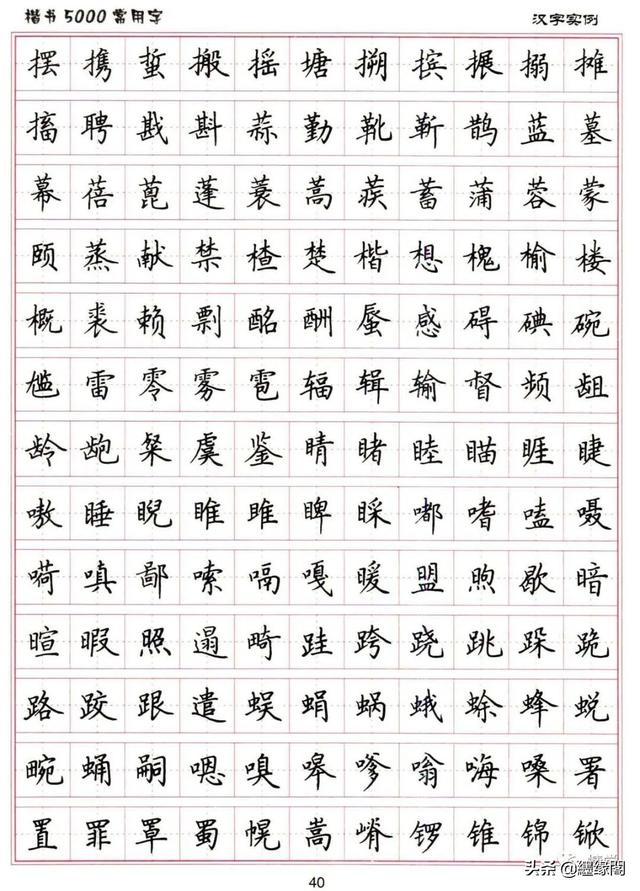 楷书5000常用字 汉字实例
摆携蜇搬摇塘搠摈搌搦摊
搐聘戡斟蒜勤靴靳鹊蓝墓
幕蓓蓖蓬蓑蒿蒺蓄蒲蓉蒙
颐蒸献禁楂楚楷想槐榆楼
概裘赖剽酩酬蜃感碍碘碗
尴雷零雾雹辐辑输督频龃
龄龅粲虞鉴睛睹睦瞄睚睫
嗷睡睨雎睢睥睬嘟嗜嗑嗫
嗬嗔鄙嗦嗝嘎暖盟煦歇暗
暄暇照遢畸跬跨跷跳跺跪
路跤跟遣蜈蜗蜗蛾蜍蜂蜕
畹蛹嗣嗯嗅嗥嗲嗡嗨嗓署
置罪罩蜀幌嵩嵴锣锥锦锨
头条@缠缘阁
40